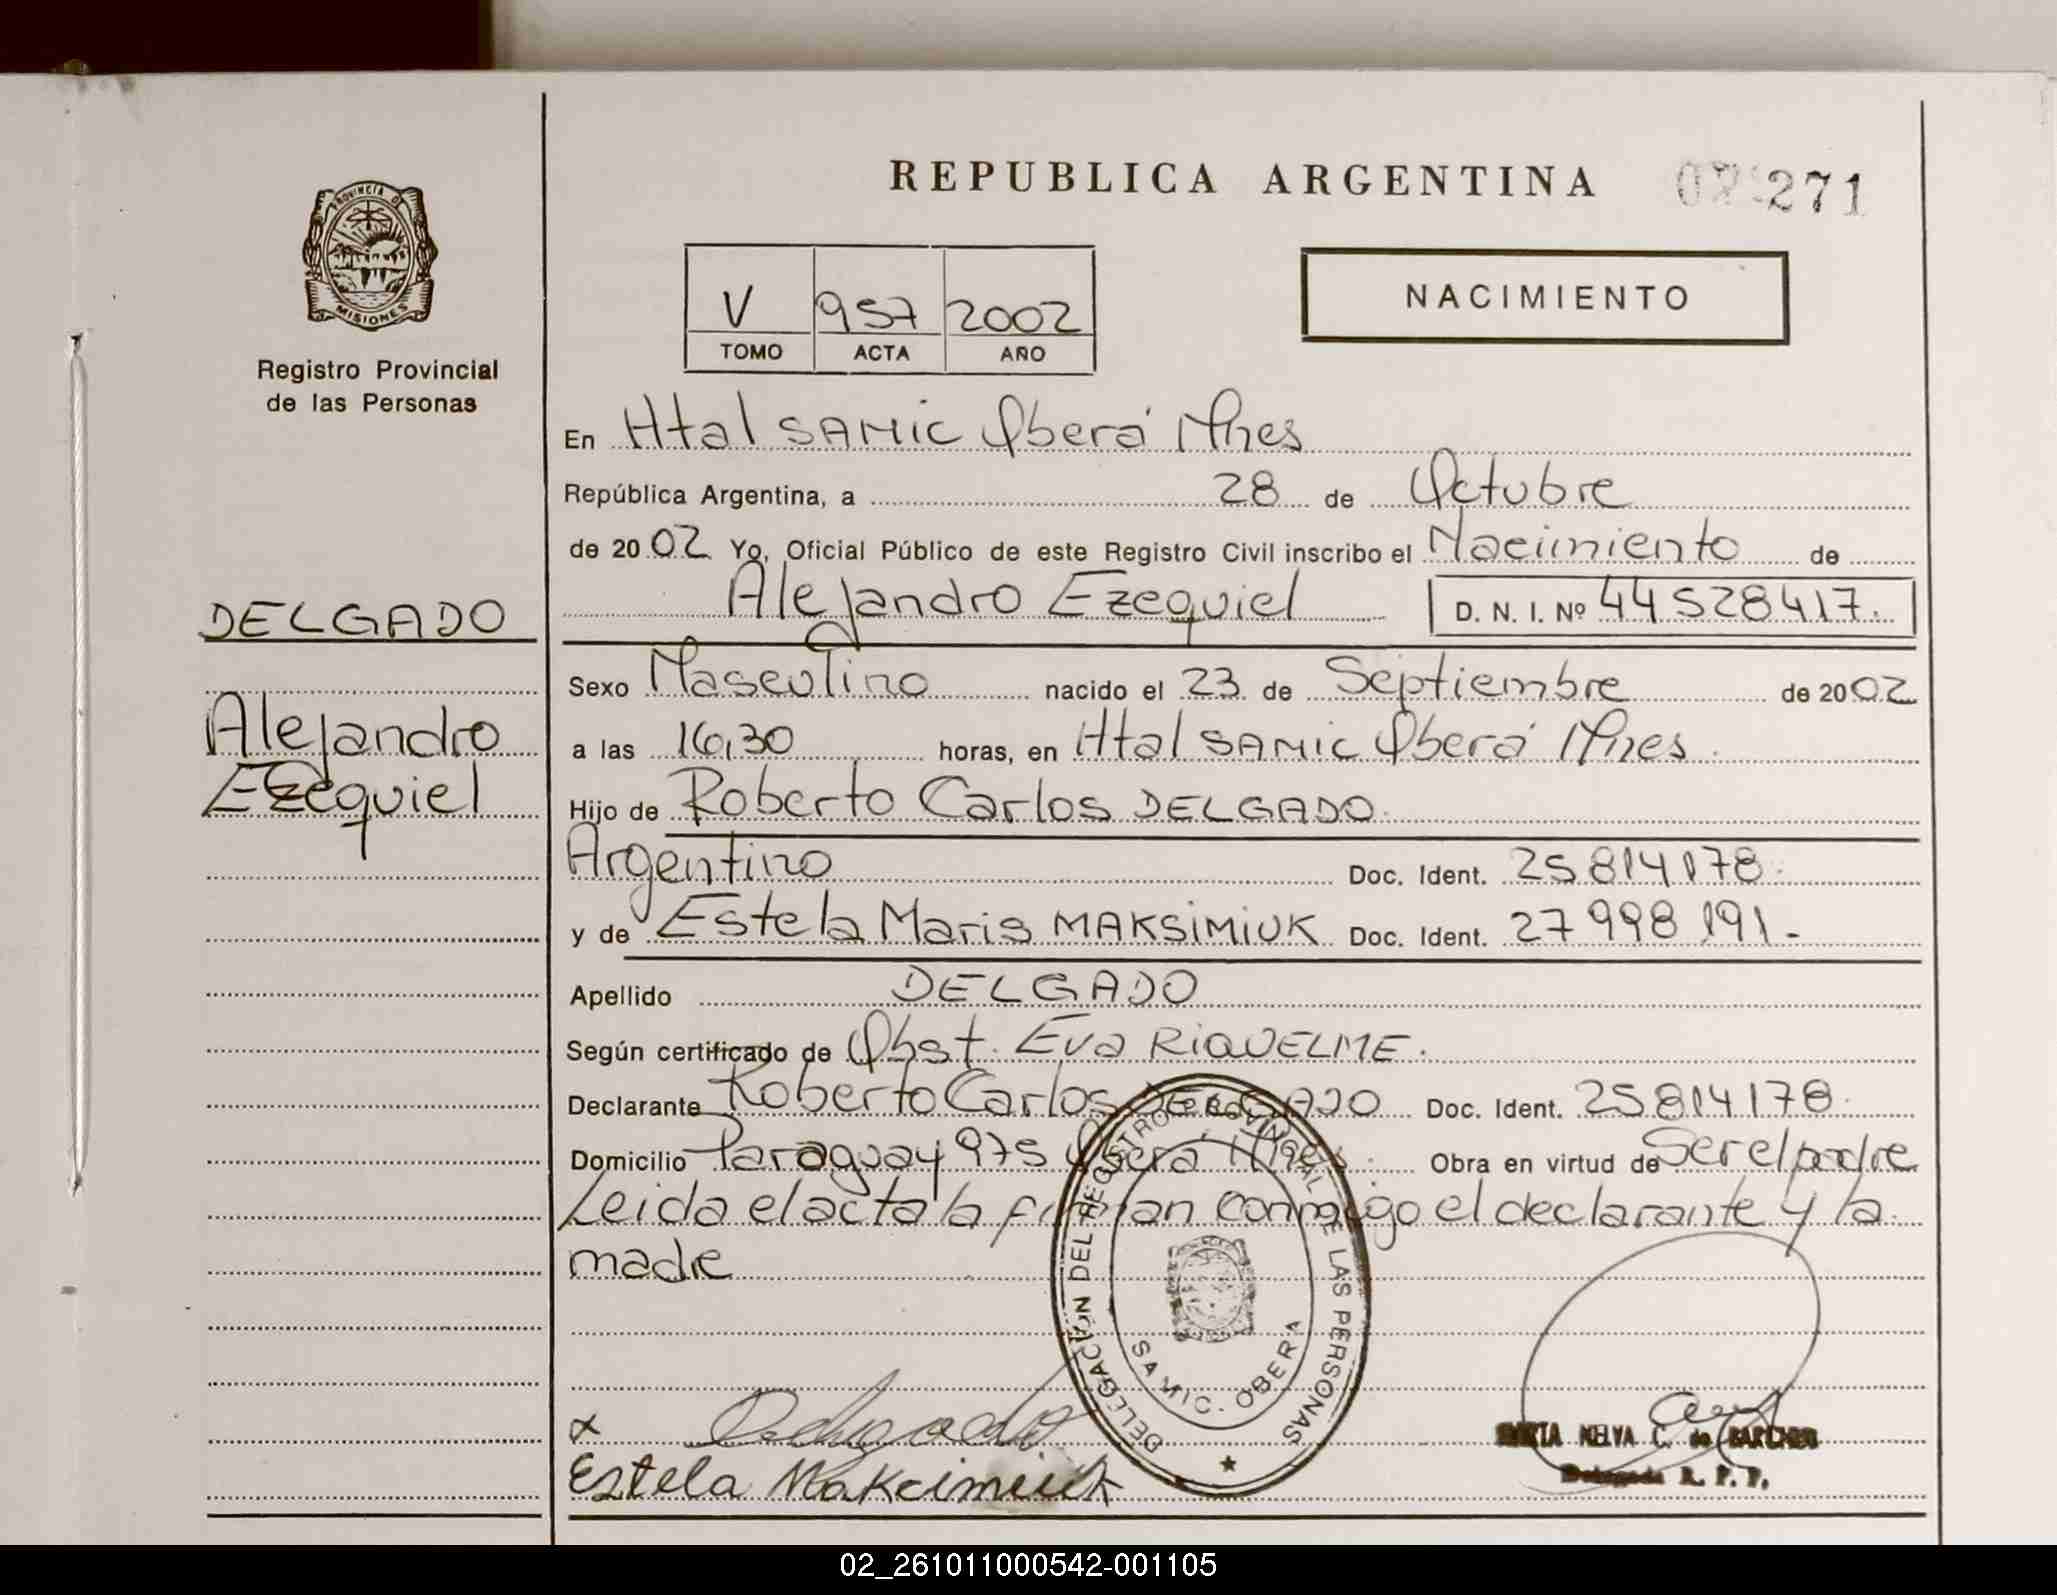 REPUBLICA ARGENTINA 271
PROVINCIA DE
MISIONES
Registro Provincial
de las Personas
V 957 2002
TOMO ACTA AÑO
NACIMIENTO
En Htal SAMIC Oberá Mnes
República Argentina, a 28 de Octubre
de 2002 Yo, Oficial Público de este Registro Civil inscribo el Nacimiento de
Alejandro Ezequiel D. N. I. Nº 44528417.
DELGADO
Alejandro
Ezequiel
Sexo Masculino nacido el 23 de Septiembre de 2002
a las 16,30 horas, en Htal SAMIC Oberá Mnes.
Hijo de Roberto Carlos DELGADO.
Argentino Doc. Ident. 25814178.
y de Estela Maris MAKSIMIUK Doc. Ident. 27998191.-
Apellido DELGADO
Según certificado de Obst. Eva RIQUELME.
Declarante Roberto Carlos DELGADO Doc. Ident. 25814178.
Domicilio Paraguay 975 Oberá Mnes. Obra en virtud de Ser el padre
Leida el acta la firman conmigo el declarante y la
madre
DELEGACIÓN DEL REGISTRO PROVINCIAL DE LAS PERSONAS
SAMIC. OBERA
x Delgado
Estela Makcimiuk
MELVA C. de
Delegada R. P. P.
02_261011000542-001105